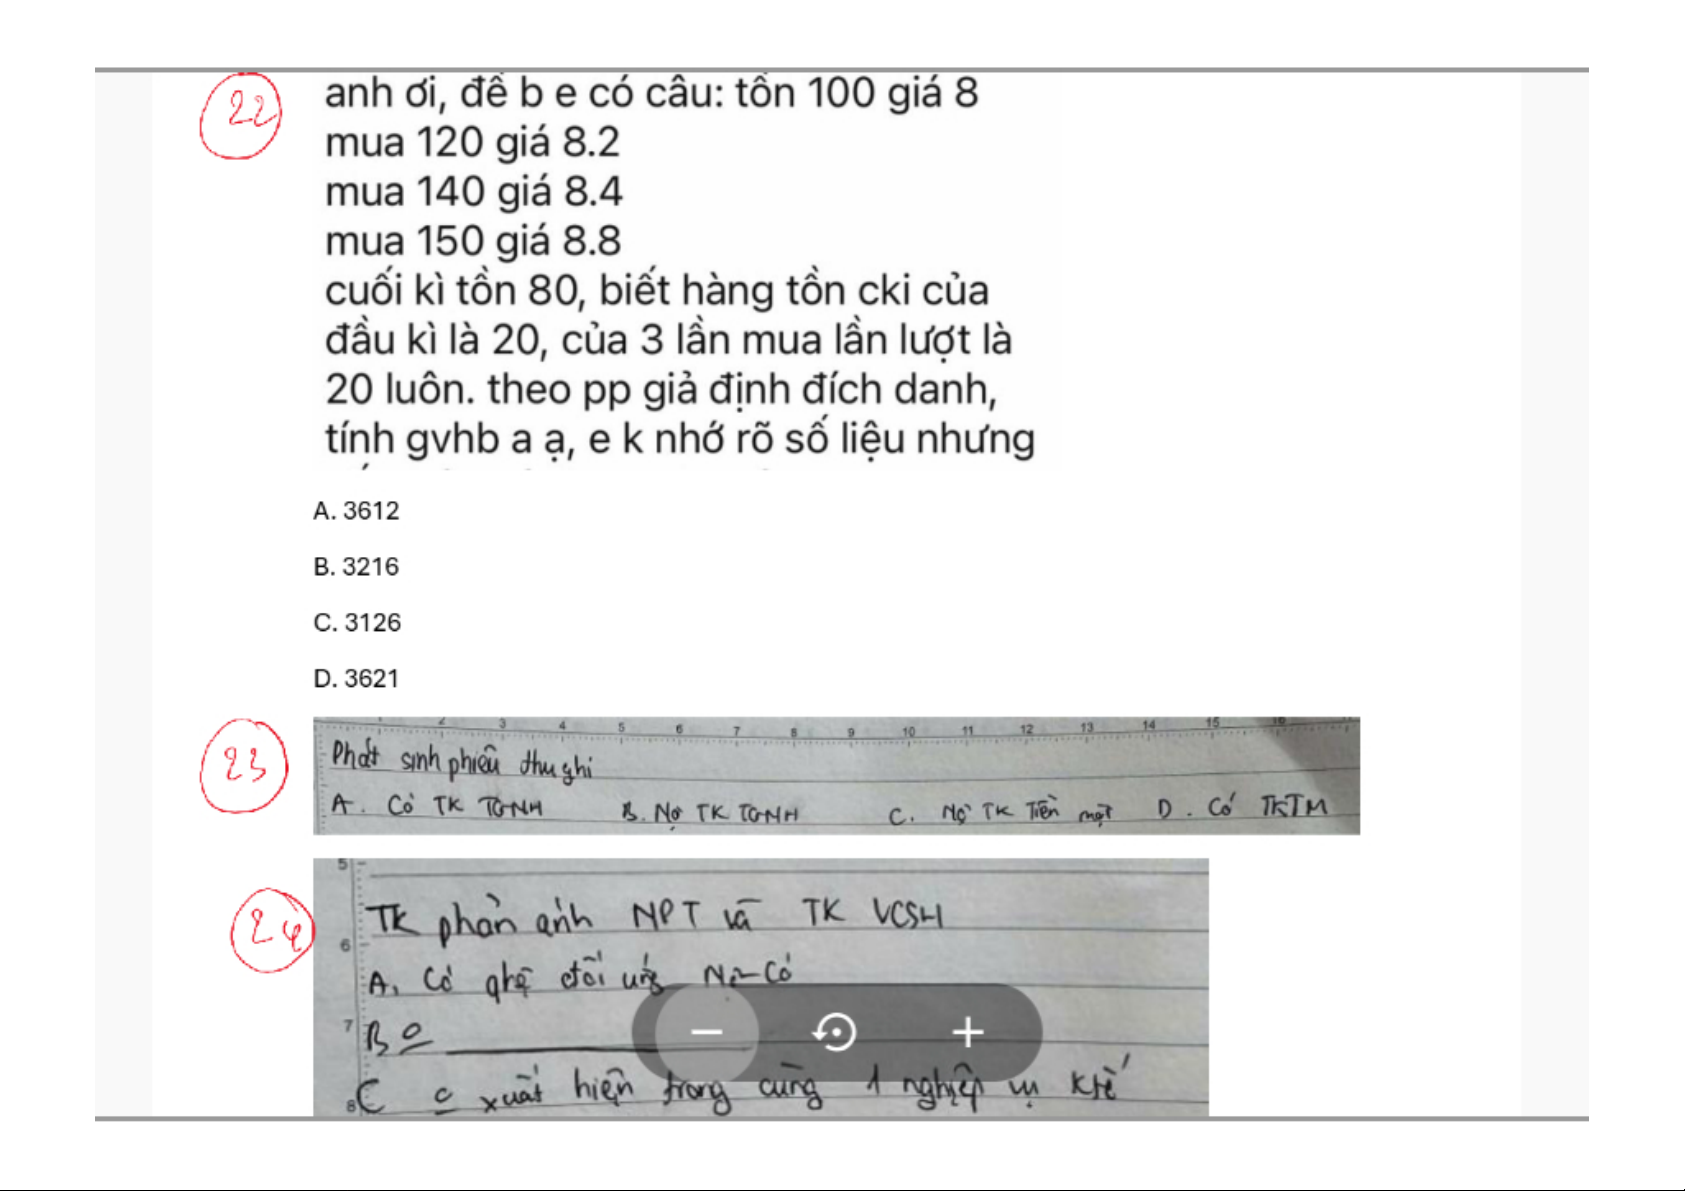 22
anh ơi, đề b e có câu: tồn 100 giá 8
mua 120 giá 8.2
mua 140 giá 8.4
mua 150 giá 8.8
cuối kì tồn 80, biết hàng tồn cki của
đầu kì là 20, của 3 lần mua lần lượt là
20 luôn. theo pp giả định đích danh,
tính gvhb a ạ, e k nhớ rõ số liệu nhưng
A. 3612
B. 3216
C. 3126
D. 3621
2 3 4 5 6 7 8 9 10 11 12 13 14 15 16
23
Phát sinh phiếu thu ghi
A. Có TK TGNH B. Nợ TK TGNH C. Nợ TK Tiền mặt D. Có TKTM
5
24
TK phản ánh NPT và TK VCSH
6
A. Có qhệ đối ứng Nợ-Có
7
B
8
C xuất hiện trong cùng 1 nghiệp vụ Ktế